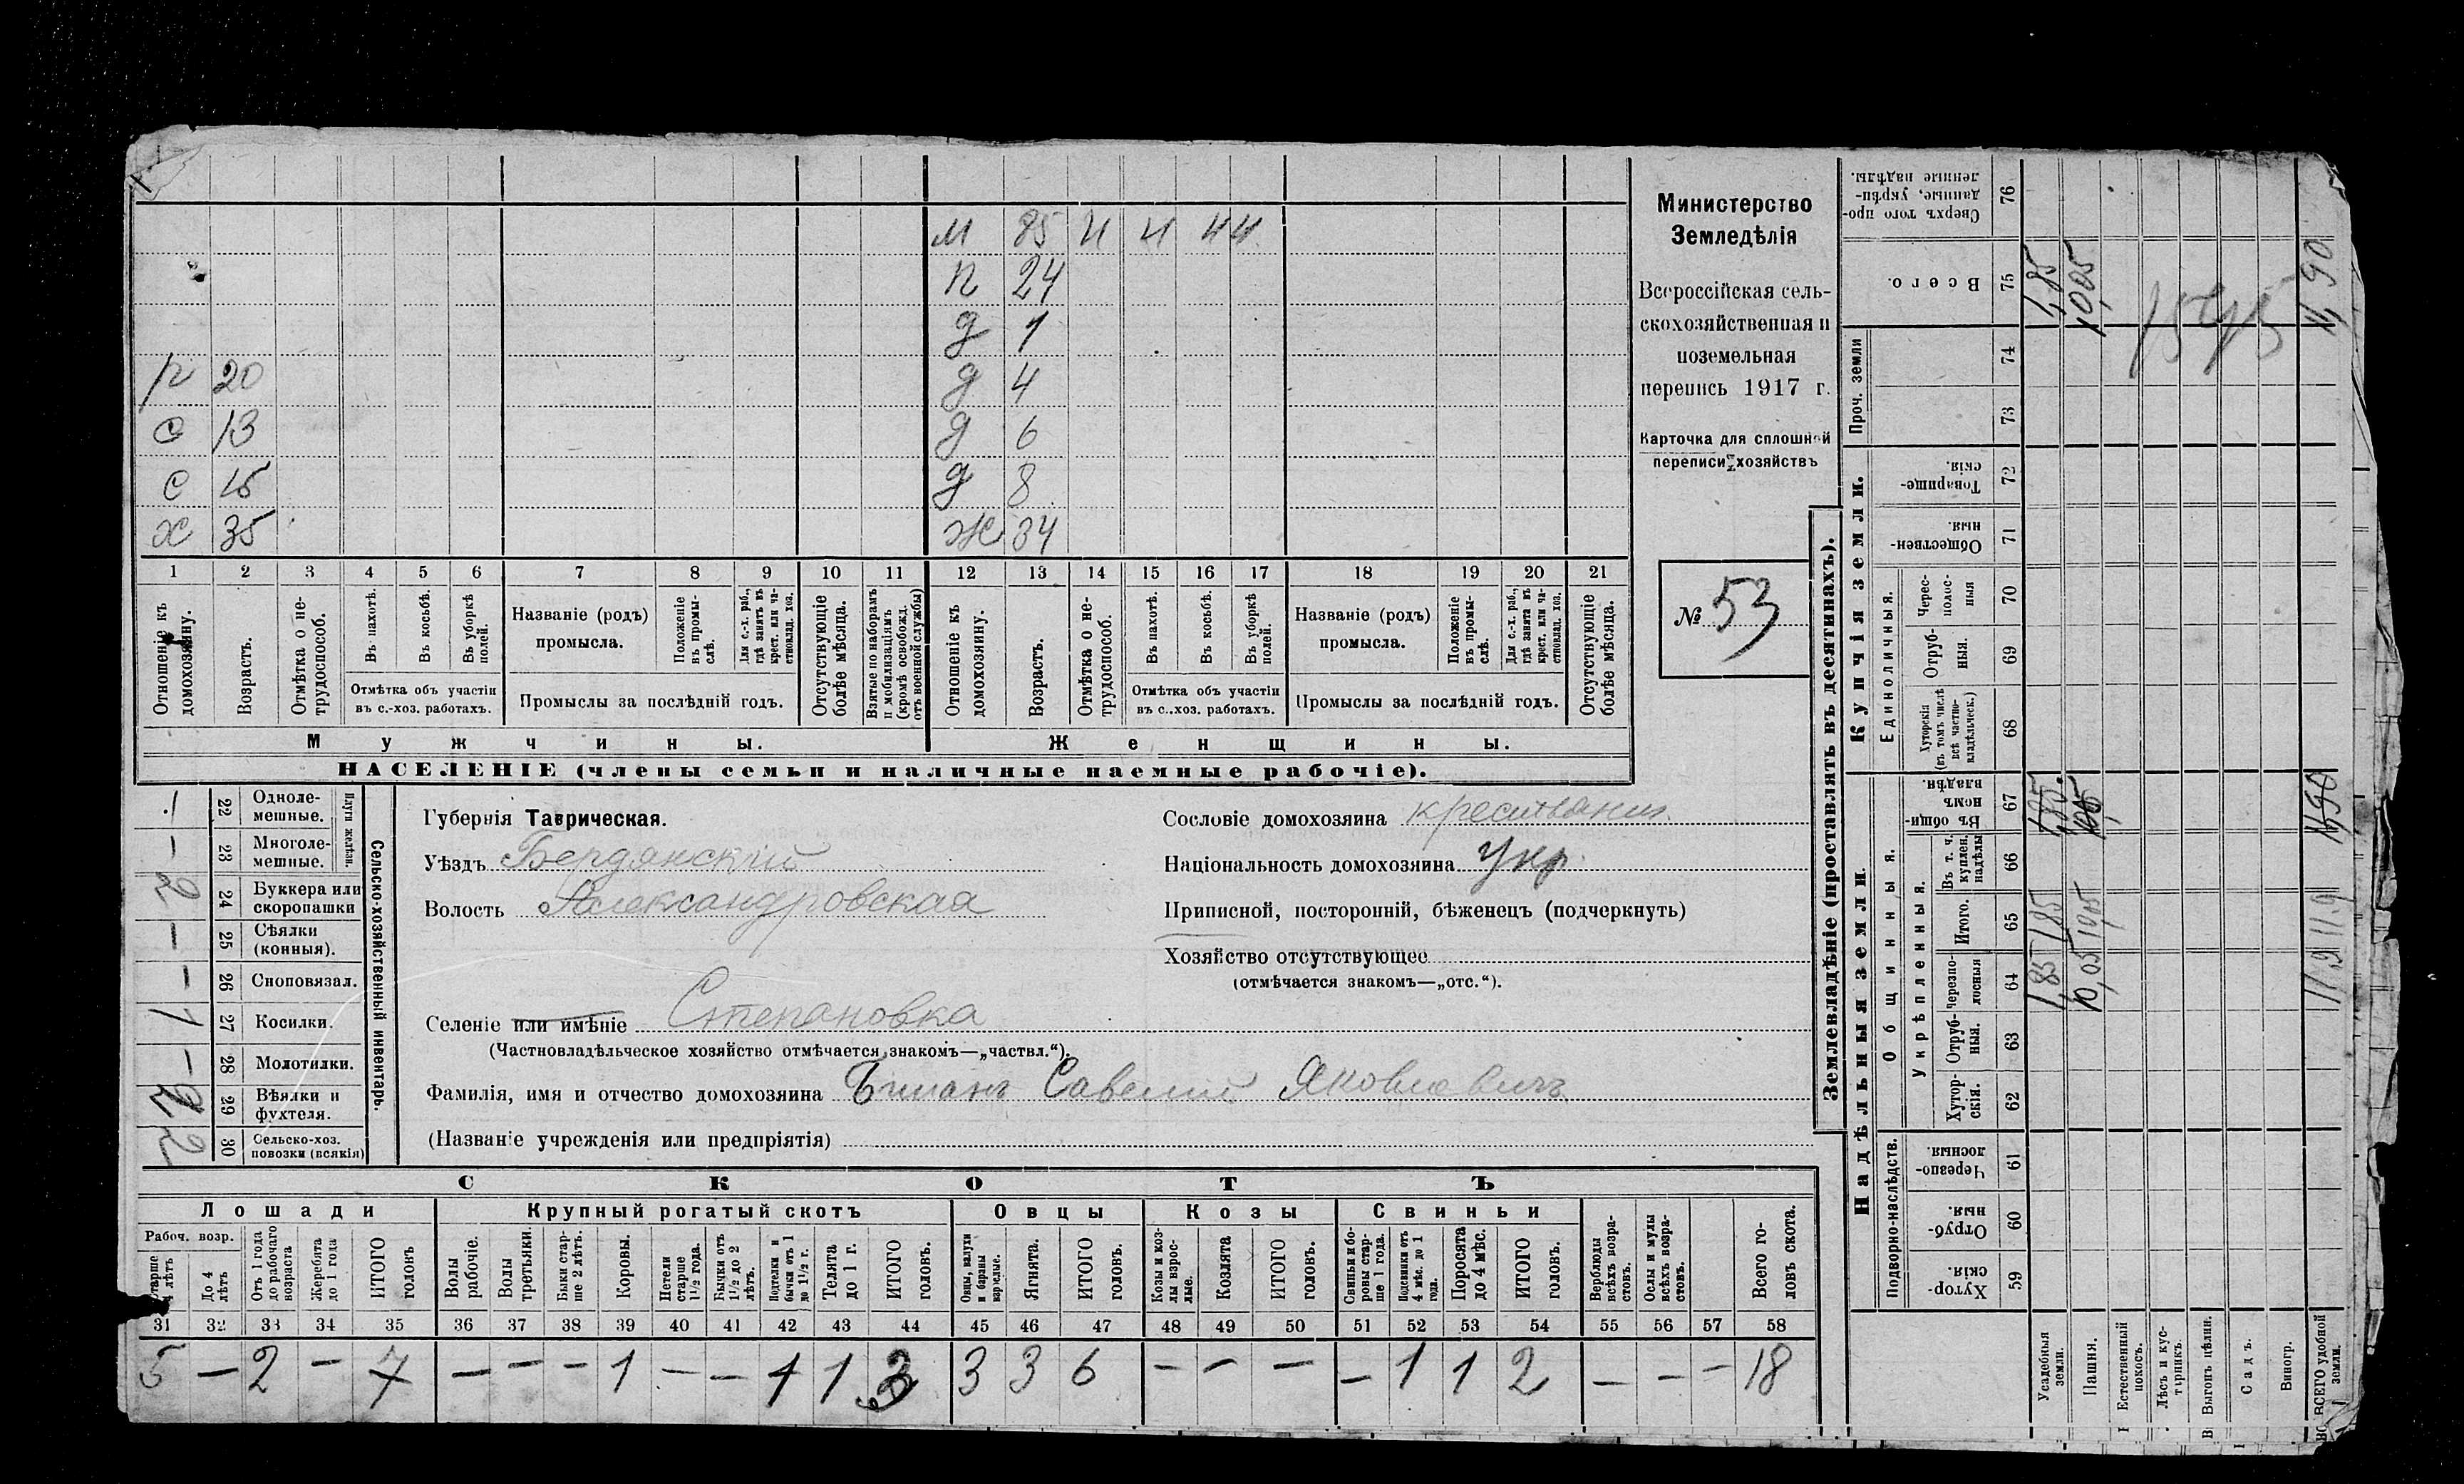 м 85 н н н н
п 24
д 1
р 20 д 4
с 13 д 6
с 15 д 8
х 35 ж 34
1 2 3 4 5 6 7 8 9 10 11 12 13 14 15 16 17 18 19 20 21
Отношеніе къ домохозяину.
Возрастъ.
Отмѣтка о нетрудоспособ.
Въ пахотѣ.
Въ косьбѣ.
Въ уборкѣ полей.
Отмѣтка объ участіи
въ с.-хоз. работахъ.
Названіе (родъ)
промысла.
Положеніе въ промыслѣ.
Для с.-х. раб., гдѣ занятъ въ крест. или частновлад. хоз.
Промыслы за послѣдній годъ.
Отсутствующіе болѣе мѣсяца.
Взятые по наборамъ и мобилизаціямъ (кромѣ освобожд. отъ военной службы)
Отношеніе къ домохозяину.
Возрастъ.
Отмѣтка о нетрудоспособ.
Въ пахотѣ.
Въ косьбѣ.
Въ уборкѣ полей.
Отмѣтка объ участіи
въ с..хоз. работахъ.
Названіе (родъ)
промысла.
Положеніе въ промыслѣ.
Для с.-х. раб., гдѣ занята въ крест. или частновлад. хоз.
Промыслы за послѣдній годъ.
Отсутствующіе болѣе мѣсяца.
Мужчины. Женщины.
НАСЕЛЕНІЕ (члены семьи и наличные наемные рабочіе).
Министерство
Земледѣлія
Всероссійская сель-
скохозяйственная и
поземельная
перепись 1917 г.
Карточка для сплошной
переписи хозяйствъ
№ 53
Сельско-хозяйственный инвентарь.
Плуги желѣзн.
1 22 Одноле-
мешные.
— 23 Многоле-
мешные.
2 24 Буккера или
скоропашки
— 25 Сѣялки
(конныя).
— 26 Сноповязал.
1 27 Косилки.
— 28 Молотилки.
29 Вѣялки и
фухтеля.
2 30 Сельско-хоз.
повозки (всякія)
Губернія Таврическая.
Уѣздъ Бердянскій
Волость Александровская
Селеніе или имѣніе Степановка
(Частновладѣльческое хозяйство отмѣчается знакомъ—„частвл.“).
Фамилія, имя и отчество домохозяина Савелій Яковлевичъ
(Названіе учрежденія или предпріятія)
Сословіе домохозяина крестьянин
Національность домохозяина Укр.
Приписной, посторонній, бѣженецъ (подчеркнуть)
Хозяйство отсутствующее
(отмѣчается знакомъ—„отс.“).
СКОТЪ
Лошади Крупный рогатый скотъ Овцы Козы Свиньи
Рабоч. возр.
Старше 4 лѣтъ
До 4 лѣтъ
Отъ 1 года до рабочаго возраста
Жеребята до 1 года
ИТОГО головъ
Волы рабочіе.
Волы третьяки.
Быки старше 2 лѣтъ.
Коровы.
Нетели старше 1½ года.
Бычки отъ 1½ до 2 лѣтъ.
Подтелки и бычки отъ 1 до 1½ г.
Телята до 1 г.
ИТОГО головъ.
Овцы, валухи и бараны взрослые.
Ягнята.
ИТОГО головъ.
Козы и козлы взрослые.
Козлята
ИТОГО головъ.
Свиньи и боровы старше 1 года.
Подсвинки отъ 4 мѣс. до 1 года.
Поросята до 4 мѣс.
ИТОГО головъ.
Верблюды всѣхъ возрастовъ.
Ослы и мулы всѣхъ возрастовъ.
Всего головъ скота.
31 32 33 34 35 36 37 38 39 40 41 42 43 44 45 46 47 48 49 50 51 52 53 54 55 56 57 58
5 — 2 — 7 — — — 1 — — 1 1 3 3 3 6 — — — — 1 1 2 — — — 18
Землевладѣніе (проставлять въ десятинахъ).
Надѣльныя земли.
Купчія земли.
Проч. земли
Подворно-наслѣдств.
Общинныя.
Укрѣпленныя.
Единоличныя.
Хуторскія. 59
Отрубныя. 60
Черезполосныя. 61
Хуторскія. 62
Отрубныя. 63
Черезполосныя 64
Итого. 65
Въ т. ч. куплен. надѣлы 66
Въ общинномъ владѣн. 67
Хуторскія (въ томъ числѣ всѣ частновладѣльческ.) 68
Отрубныя. 69
Чересполосныя 70
Общественныя. 71
Товарищескія. 72
73
74
Всего. 75
Сверхъ того проданные, укрѣпленные надѣлы. 76
Усадебныя земли. 1,85 1,85 1,85 1,85
Пашня. 10,05 10,05 10,05 10,05
Естественный покосъ.
Лѣсъ и кустарникъ.
Выгонъ цѣлин.
Садъ.
Виногр.
ВСЕГО удобной земли. 11,9 11.9 11,90 11,90